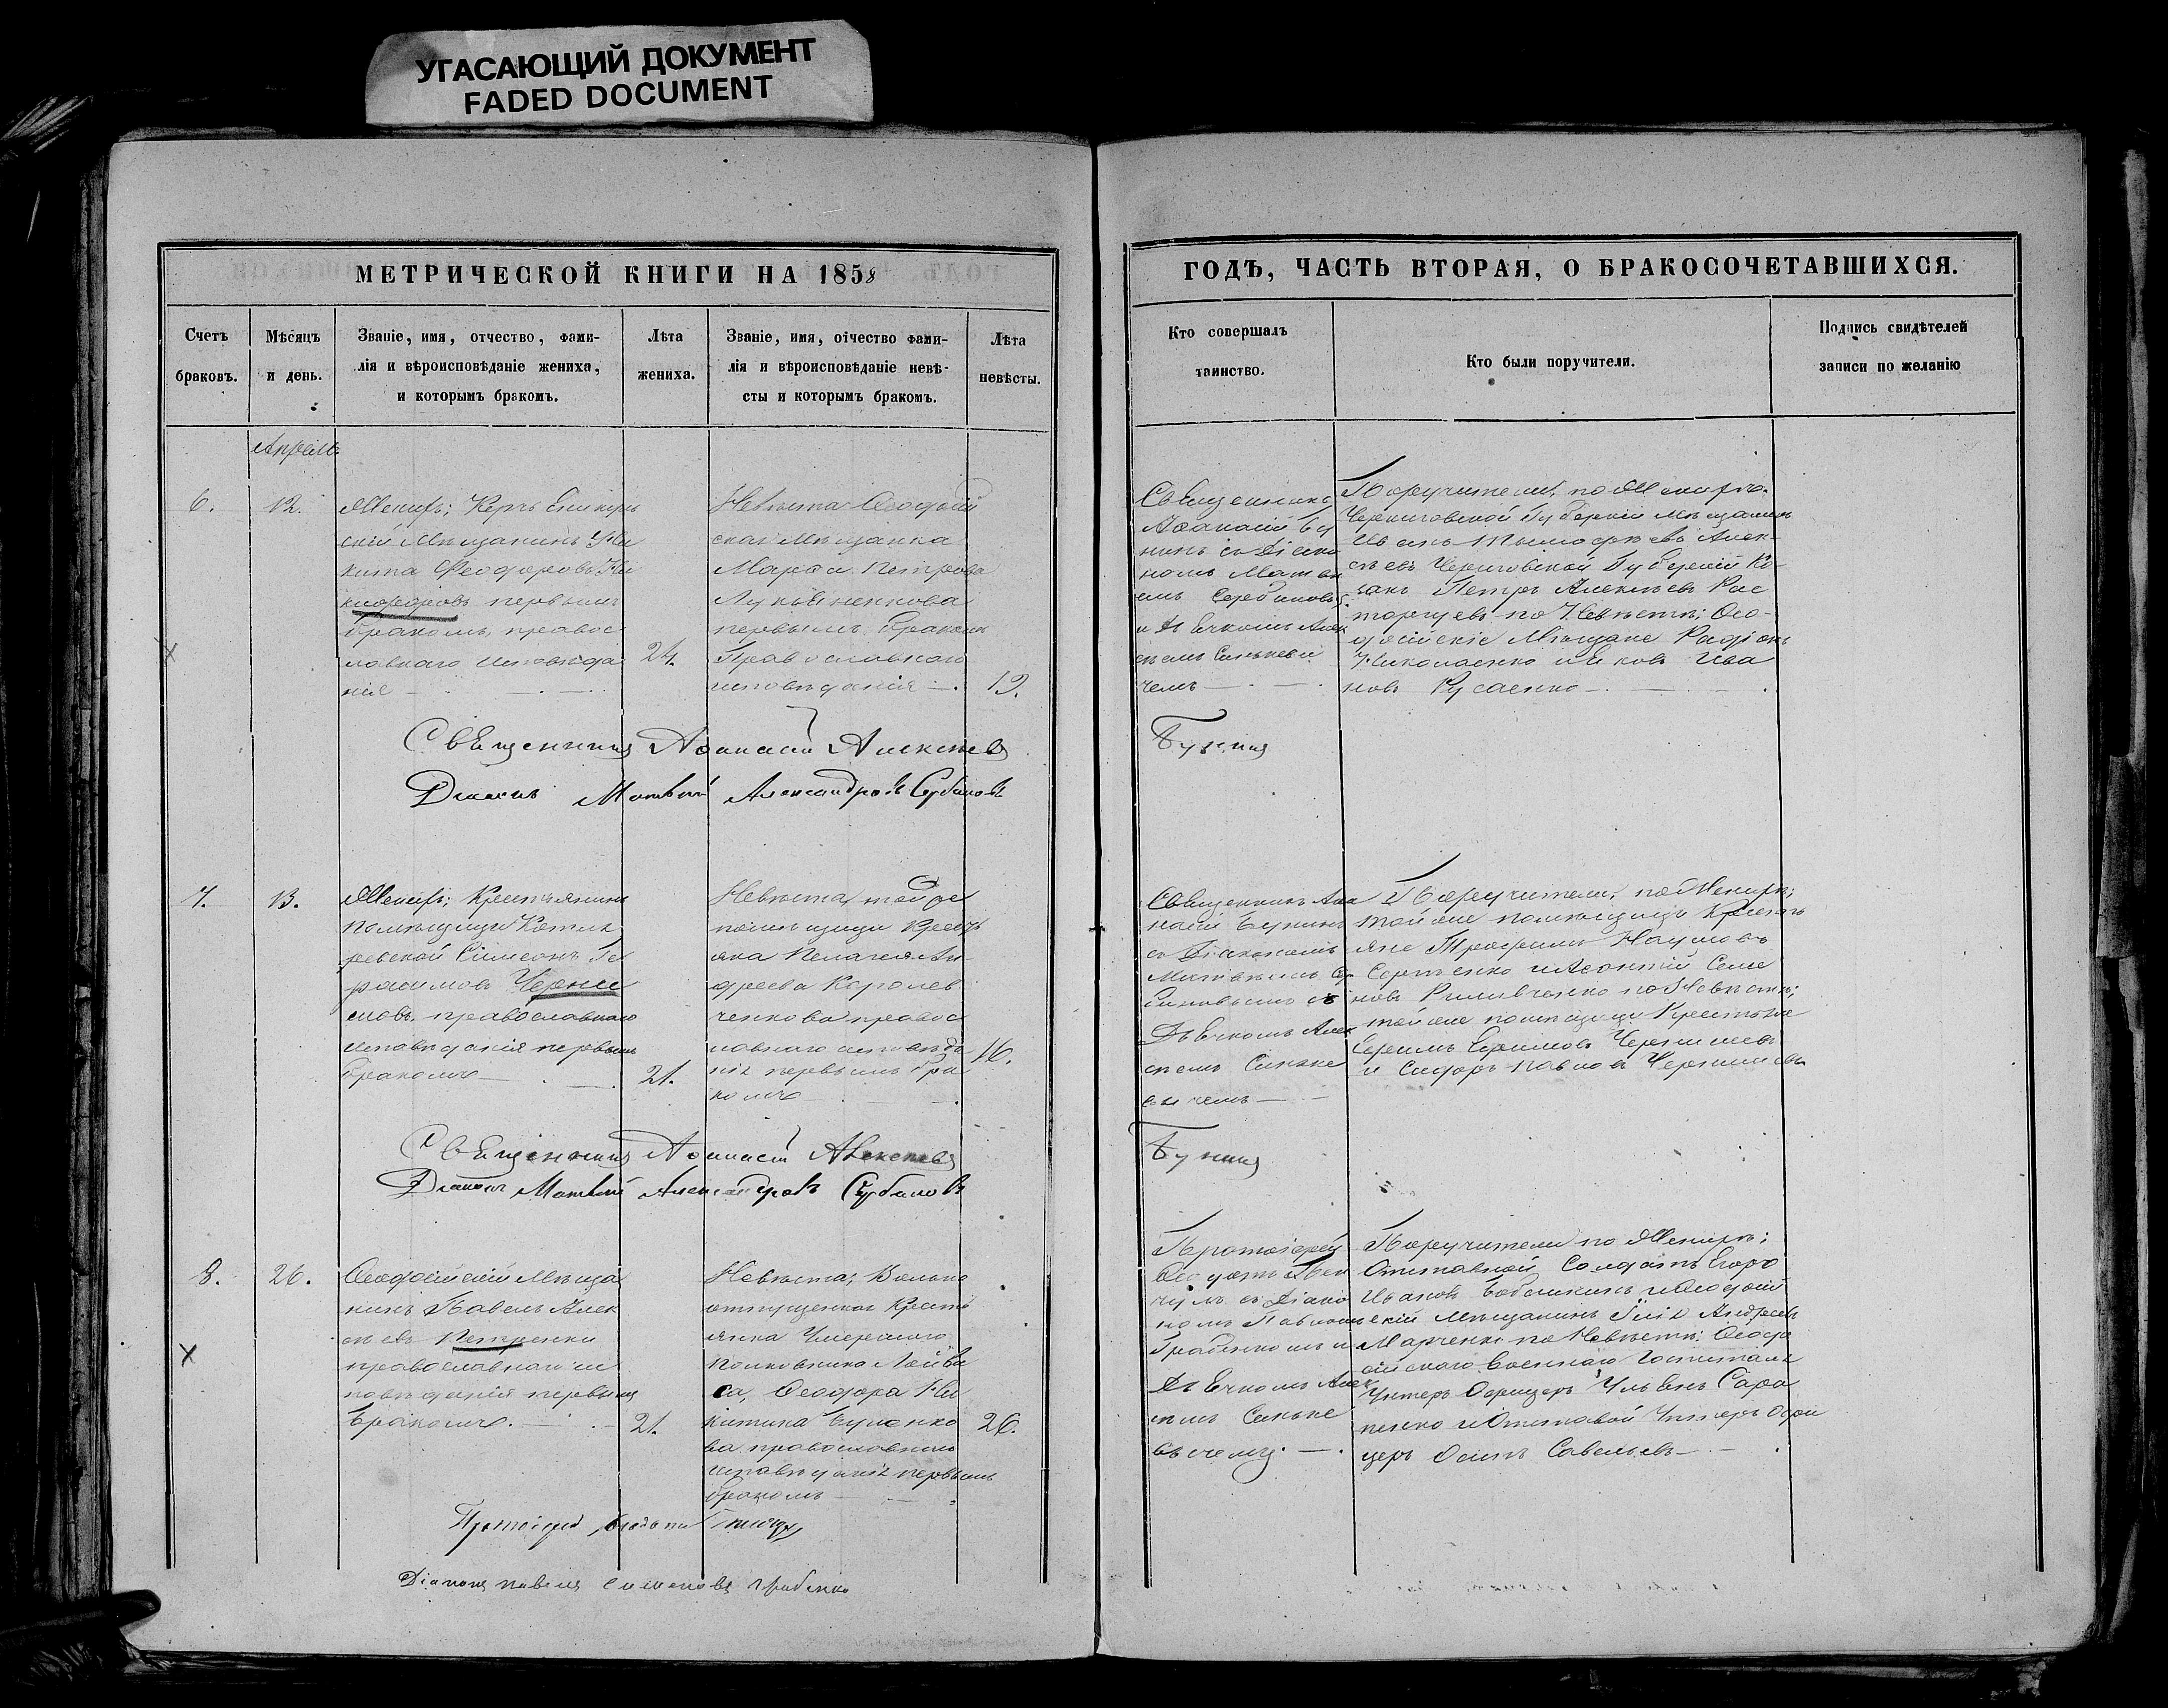 УГАСАЮЩИЙ ДОКУМЕНТ
FADED DOCUMENT
МЕТРИЧЕСКОЙ КНИГИ НА 1858
Счетъ
браковъ.
Мѣсяцъ
и день.
Званіе, имя, отчество, фами-
лія и вѣроисповѣданіе жениха,
и которымъ бракомъ.
Лѣта
жениха.
Званіе, имя, отчество фами-
лія и вѣроисповѣданіе невѣ-
сты и которымъ бракомъ.
Лѣта
невѣсты.
Апрѣль
6.
12.
Женихъ; Керчь Еникуль
скій Мѣщанинъ Ни
кита Феодоровъ Ни
кифоровъ первымъ
бракомъ, правос
лавнаго исповѣда
нія
24.
Невѣста Ѳеодосій
ская Мѣщанка
Марѳа Петрова
Лукьяненкова
первымъ бракомъ
Православнаго
исповѣданія
19.
Священникъ Аѳанасій Алексѣевъ
Діаконъ Матвѣй Александровъ Сербиновъ
7.
13.
Женихъ; Крестьянинъ
помѣщицы Котля
ревской Сімеонъ Ге
расимовъ Черны
шовъ православнаго
исповѣданія первымъ
бракомъ
21.
Невѣста, той же
помѣщицы Кресть
янка Пелагея Ан
дреева Королев
ченкова правос
лавнаго исповѣда
нія первымъ бра
комъ
16.
Священникъ Аѳанасій Алексѣевъ
Діаконъ Матвѣй Александровъ Сербиновъ
8.
26.
Ѳеодосійскій Мѣща
нинъ Павелъ Алек
сѣевъ Петренко
православнаго ис
повѣданія первымъ
бракомъ.
21.
Невѣста; Вольно
отпущенная Кресть
янка Умершаго
Полковника
са, Ѳеодора Ни
китина
ва православнаго
исповѣданія первымъ
бракомъ
26.
Протоіерей
Діаконъ Павелъ Симоновъ Грабенко
ГОДЪ, ЧАСТЬ ВТОРАЯ, О БРАКОСОЧЕТАВШИХСЯ.
Кто совершалъ
таинство.
Кто были поручители.
Подпись свидѣтелей
записи по желанію
Священникъ
Аѳанасій Бу
нинъ съ Діако
номъ Матвѣ
емъ Сербиновымъ
и Дьячкомъ Алек
сѣемъ Синькеви
чемъ
Поручители, по Женихѣ.
Черниговской Губерніи мѣщанинъ
Иванъ Тимофѣевъ Алек-
сѣевъ Черниговской Губерніи Ко-
закъ Петръ Алексѣевъ Рас
торгуевъ по Невѣстѣ; Ѳео-
досійскіе Мѣщане Родіонъ
Николаенко и Яковъ Ива
новъ Русаенко
Бунинъ
Священникъ Аѳа
насій Бунинъ
съ Діакономъ
Матвѣемъ Сер
биновымъ съ
Дьячкомъ Алек
сѣемъ Синьке
вичемъ
Поручители, по Женихѣ;
той же помѣщицы Кресть
яне Трофимъ Наумовъ
Сергѣенко и Леонтій Семе
новъ по Невѣстѣ;
той же помѣщицы Крестьяне
Чернышевъ
и Сидоръ Павловъ Чернышевъ
Бунинъ
Протоіерей
съ Діако
номъ Павломъ
Грабенкомъ и
Дьячкомъ Алек
сѣемъ Синьке
вичемъ
Поручители по Женихѣ;
Отставной Солдатъ Егоръ
Ивановъ и Ѳеодосій
скій мѣщанинъ Илія Андреевъ
Марченко по Невѣстѣ; Ѳеодо
сійскаго Военнаго Госпиталя
Унтеръ Офицеръ Ульянъ Сара
пенко и Отставной Унтеръ Офи
церъ Осипъ Савельевъ